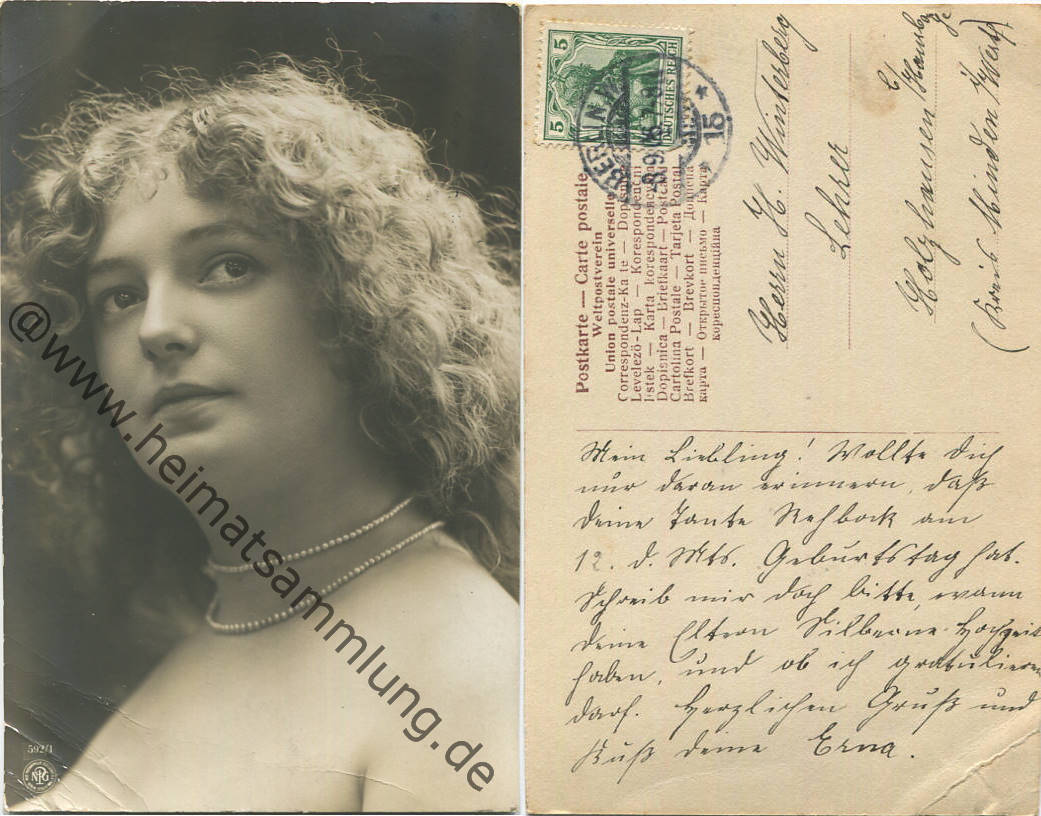 @www.heimatsammlung.de
592/1
NPG
5
5
DEUTSCHES REICH
BERLIN N.W.
8.9.06
* 15 *
Postkarte — Carte postale
Weltpostverein
Union postale universelle
Correspondenz-Karte — Dopisnice
Levelező-Lap — Korespondenční
lístek — Karta korespondencyjna
Dopisnica — Briefkaart — Postcard
Cartolina Postale — Tarjeta Postal
Brefkort — Brevkort — Дописна
карта — Открытое письмо — Карта
кореспонденційна
Herrn H. Winterberg
Lehrer
Holzhausen
(Kreis Minden / Westf)
Mein Liebling! Wollte dich
nur daran erinnern, daß
deine Tante Rehbock am
12. d. Mts. Geburtstag hat.
Schreib mir doch bitte, wann
deine Eltern Silberne Hochzeit
haben, und ob ich gratulieren
darf. Herzlichen Gruß und
Kuß deine Erna.